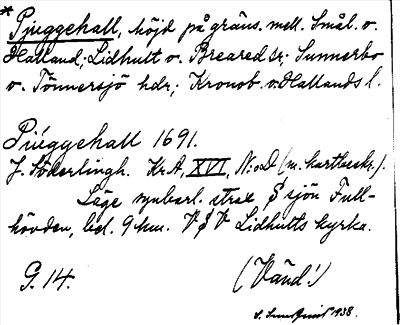 * Pjuggehall, höjd på gräns. mell. Smål. o.
Halland; Lidhult o. Breared sr; Sunnerbo
o. Tönnersjö hdr; Kronob. o. Hallands l.
Piúggehall 1691.
J. Söderlingh. KrA, XVI, N:o D (m. kartbeskr.).
Läge synbarl. strax S sjön Full-
hövden, bel. 9 km. VSV Lidhults kyrka.
G. 14.
(Vänd!)
S. 1938.